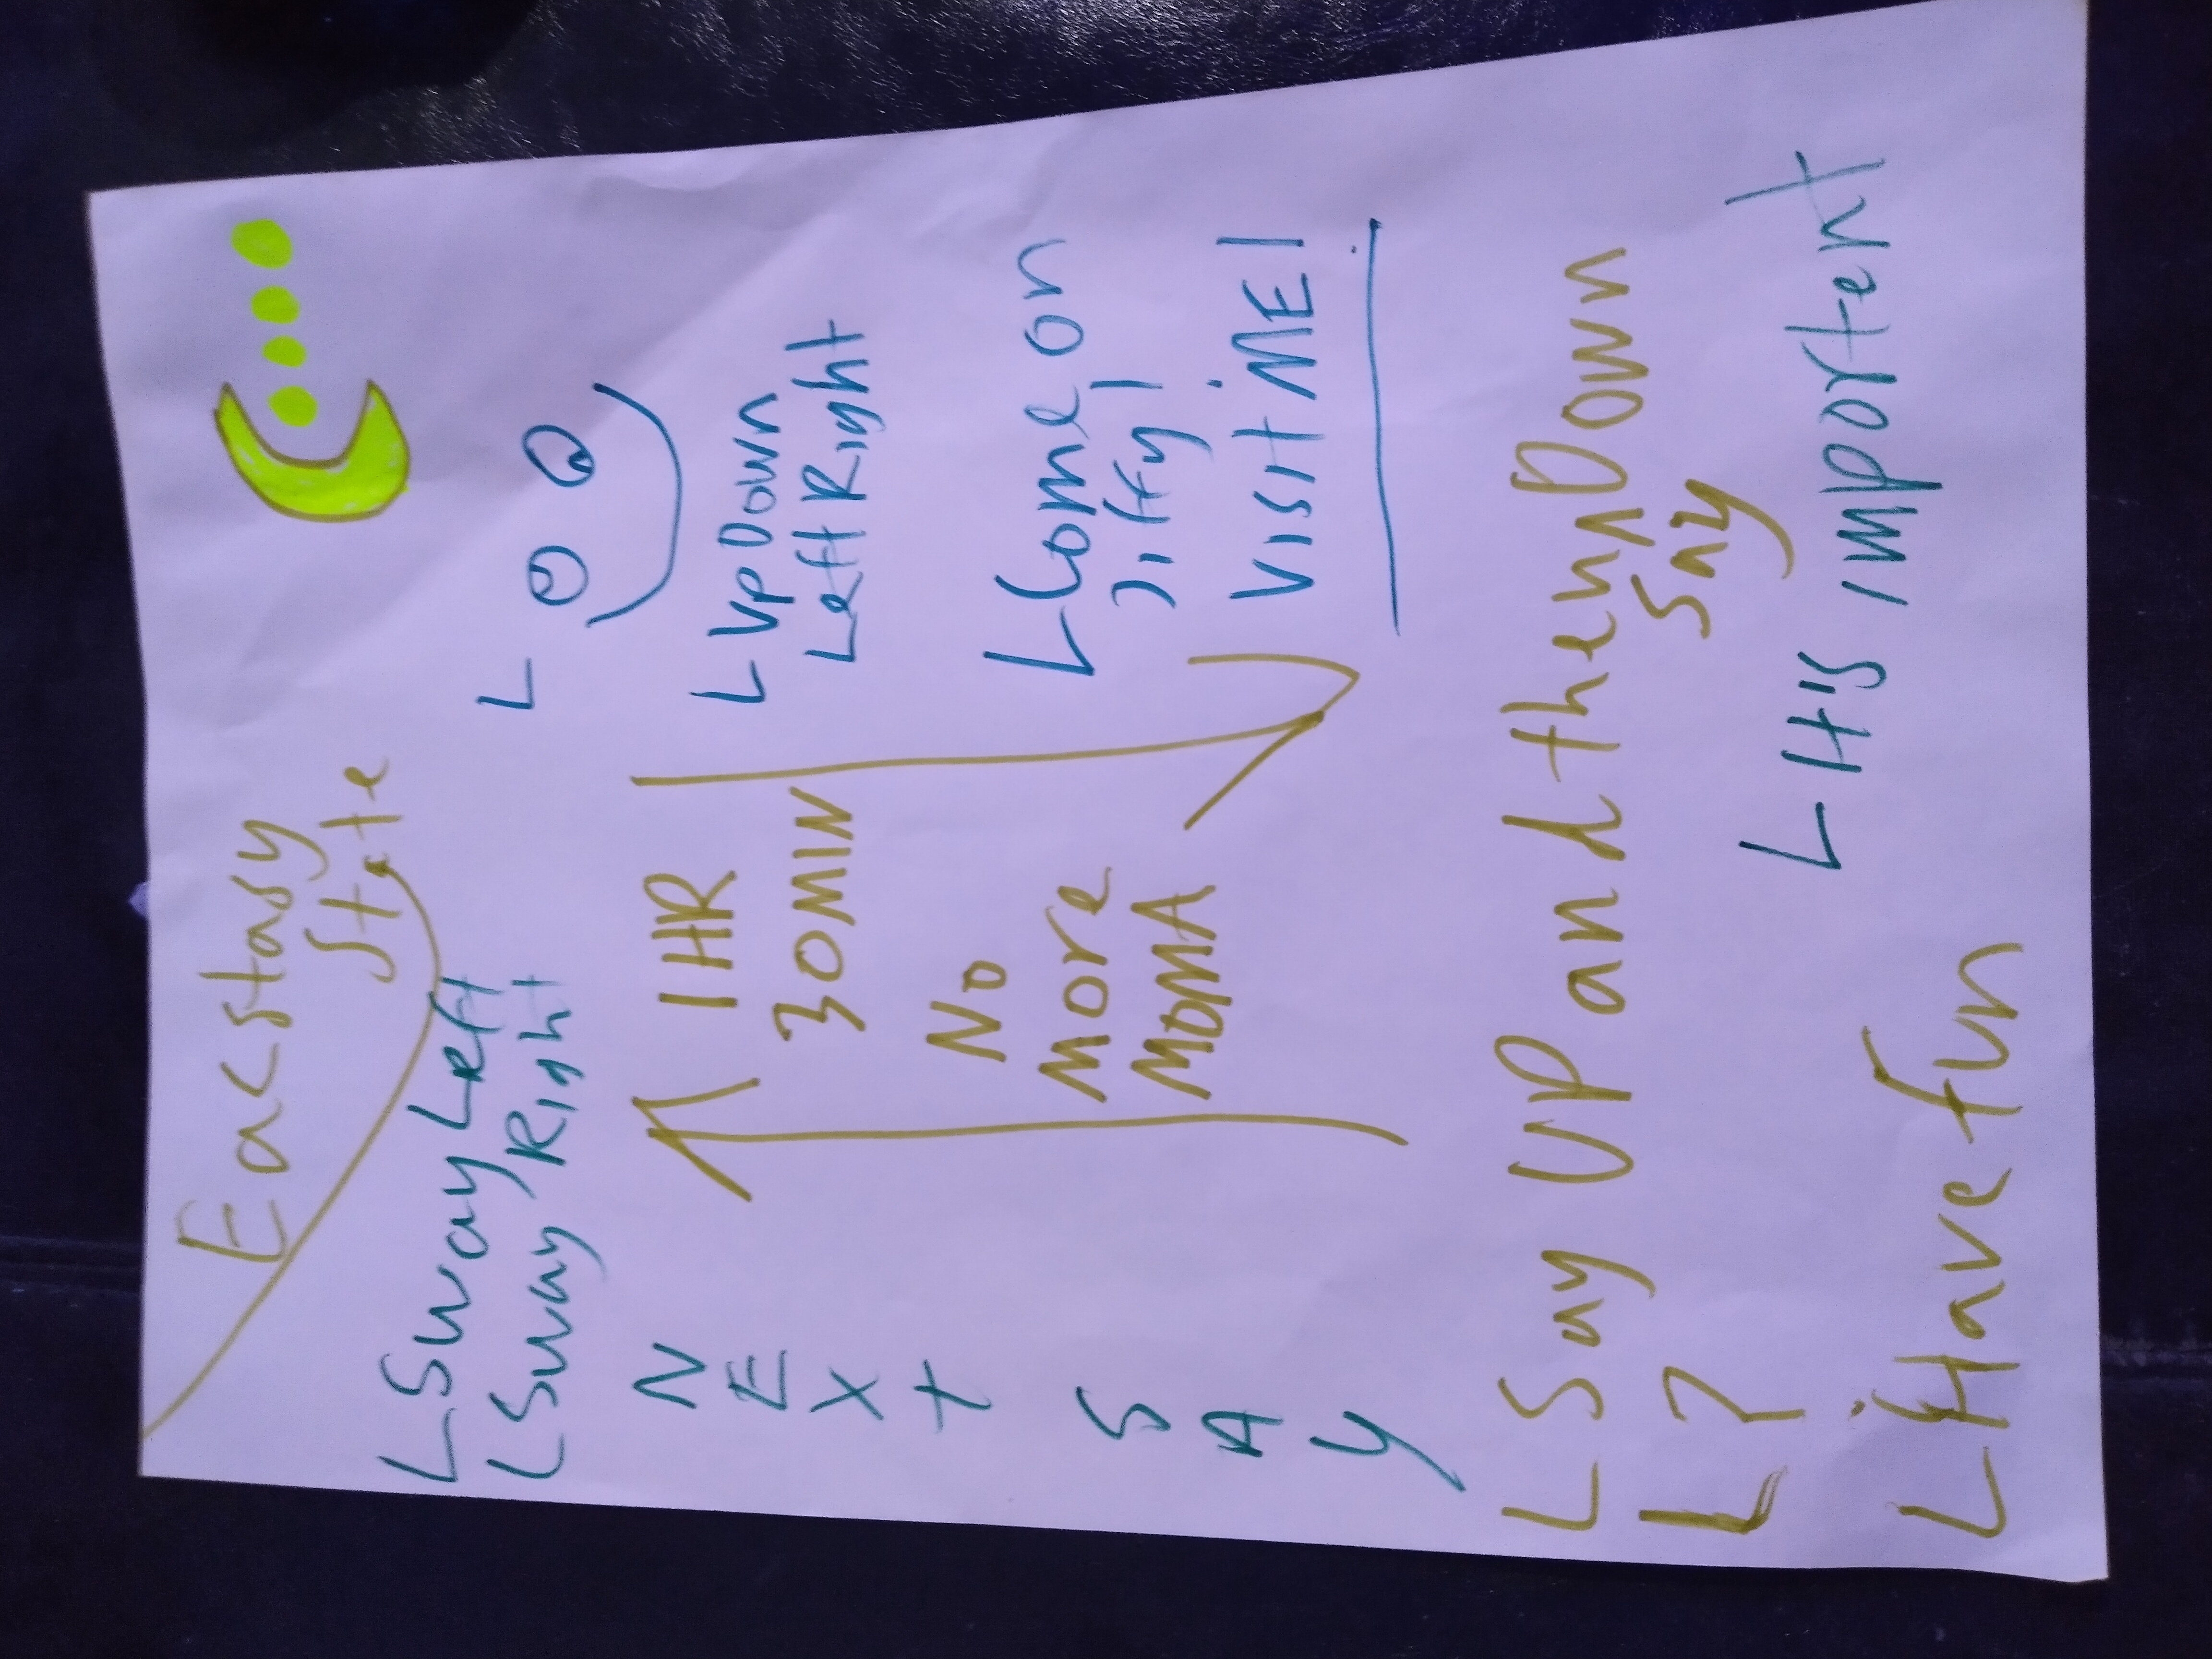 Eacstasy
State
L Sway Left
L Sway Right
L
L UP Down
Left Right
NEXT
SAY
1 HR
30 MIN
No
More
MOMA
L Come on
Jiffy!
VISIT ME!
L Say UP and then Down
L ?
say
L It is important
L Have fun